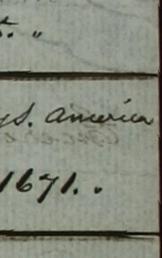 t. "
ys. America
1671..